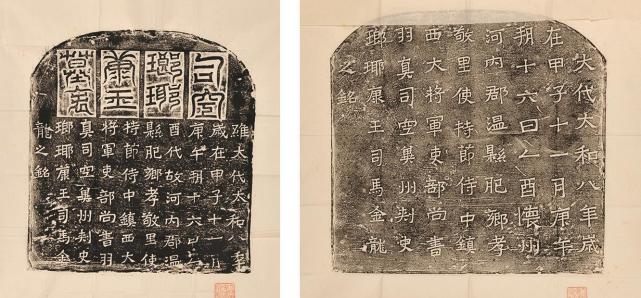 司空
瑯琊
康王
墓表
維大代大和八年
歲在甲子十一月
庚午朔十六日乙
酉代故河内郡温
縣肥鄉孝敬里使
持節侍中鎮西大
將軍吏部尚書羽
真司空冀州刺史
瑯琊康王司馬金
龍之銘
大代大和八年歲
在甲子十一月庚午
朔十六日乙酉懷州
河内郡温縣肥鄉孝
敬里使持節侍中鎮
西大將軍吏部尚書
羽真司空冀州刺史
瑯琊康王司馬金龍
之銘